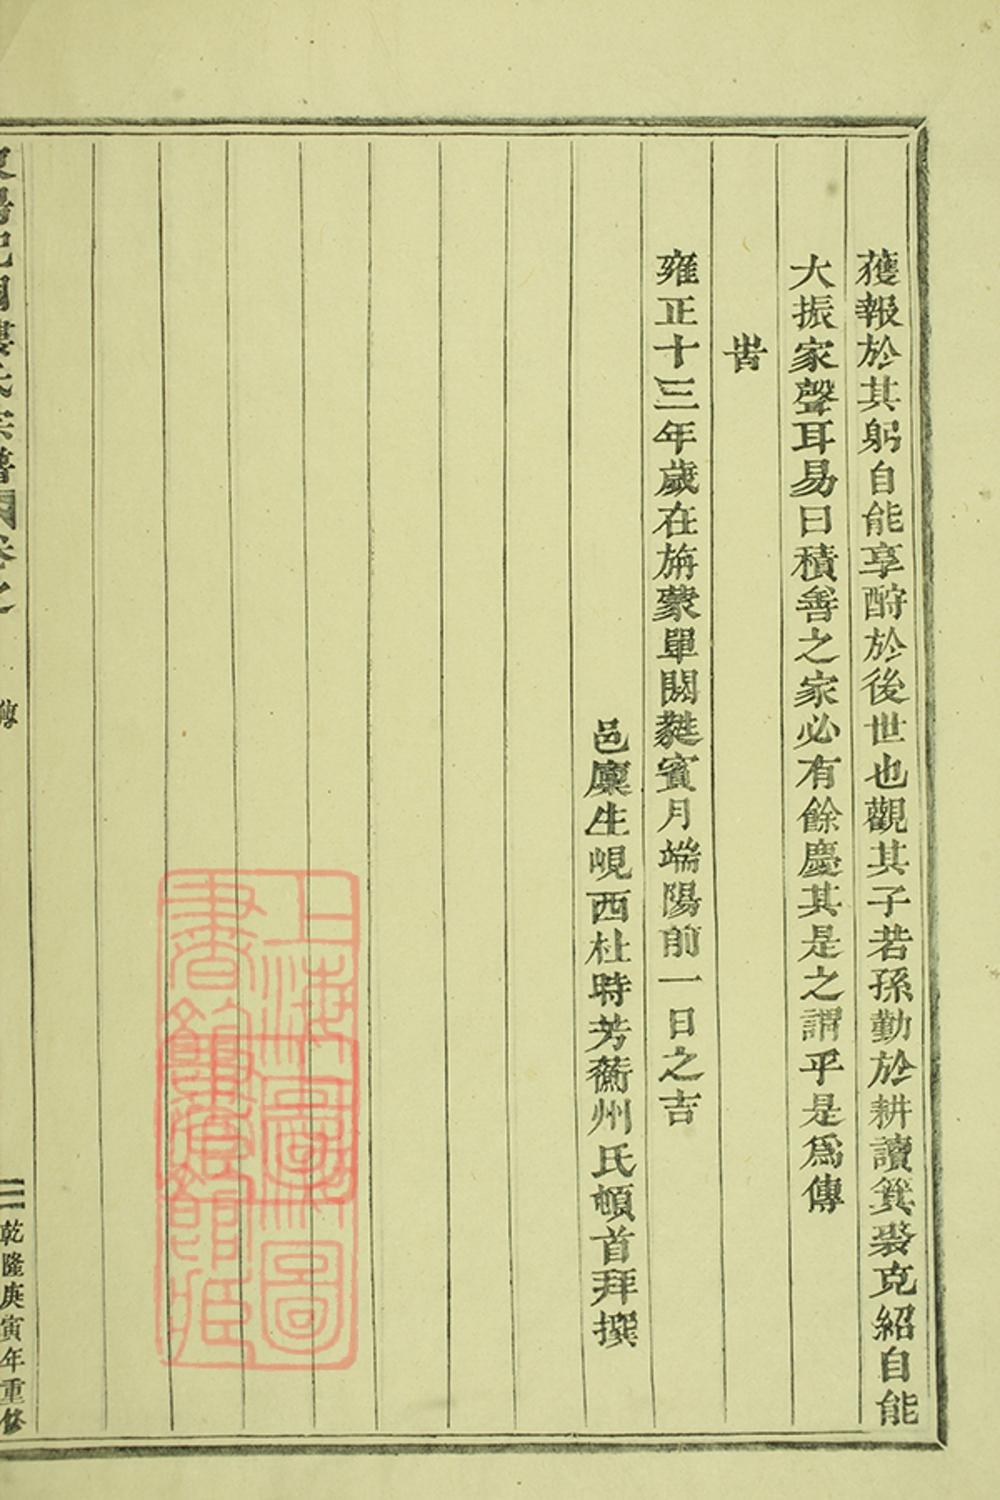 獲報於其躬自能享酹於後世也觀其子若孫勤於耕讀箕裘克紹自能
大振家聲耳易曰積善之家必有餘慶其是之謂乎是爲傳
旹
雍正十三年歲在旃蒙單閼蕤賓月端陽前一日之吉
邑廩生峴西杜時芳蘅州氏頓首拜撰
氏宗譜 卷之 傳 乾隆庚寅年重修
上海圖書館藏